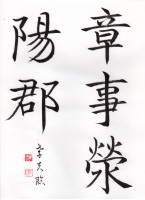 章事滎
陽郡